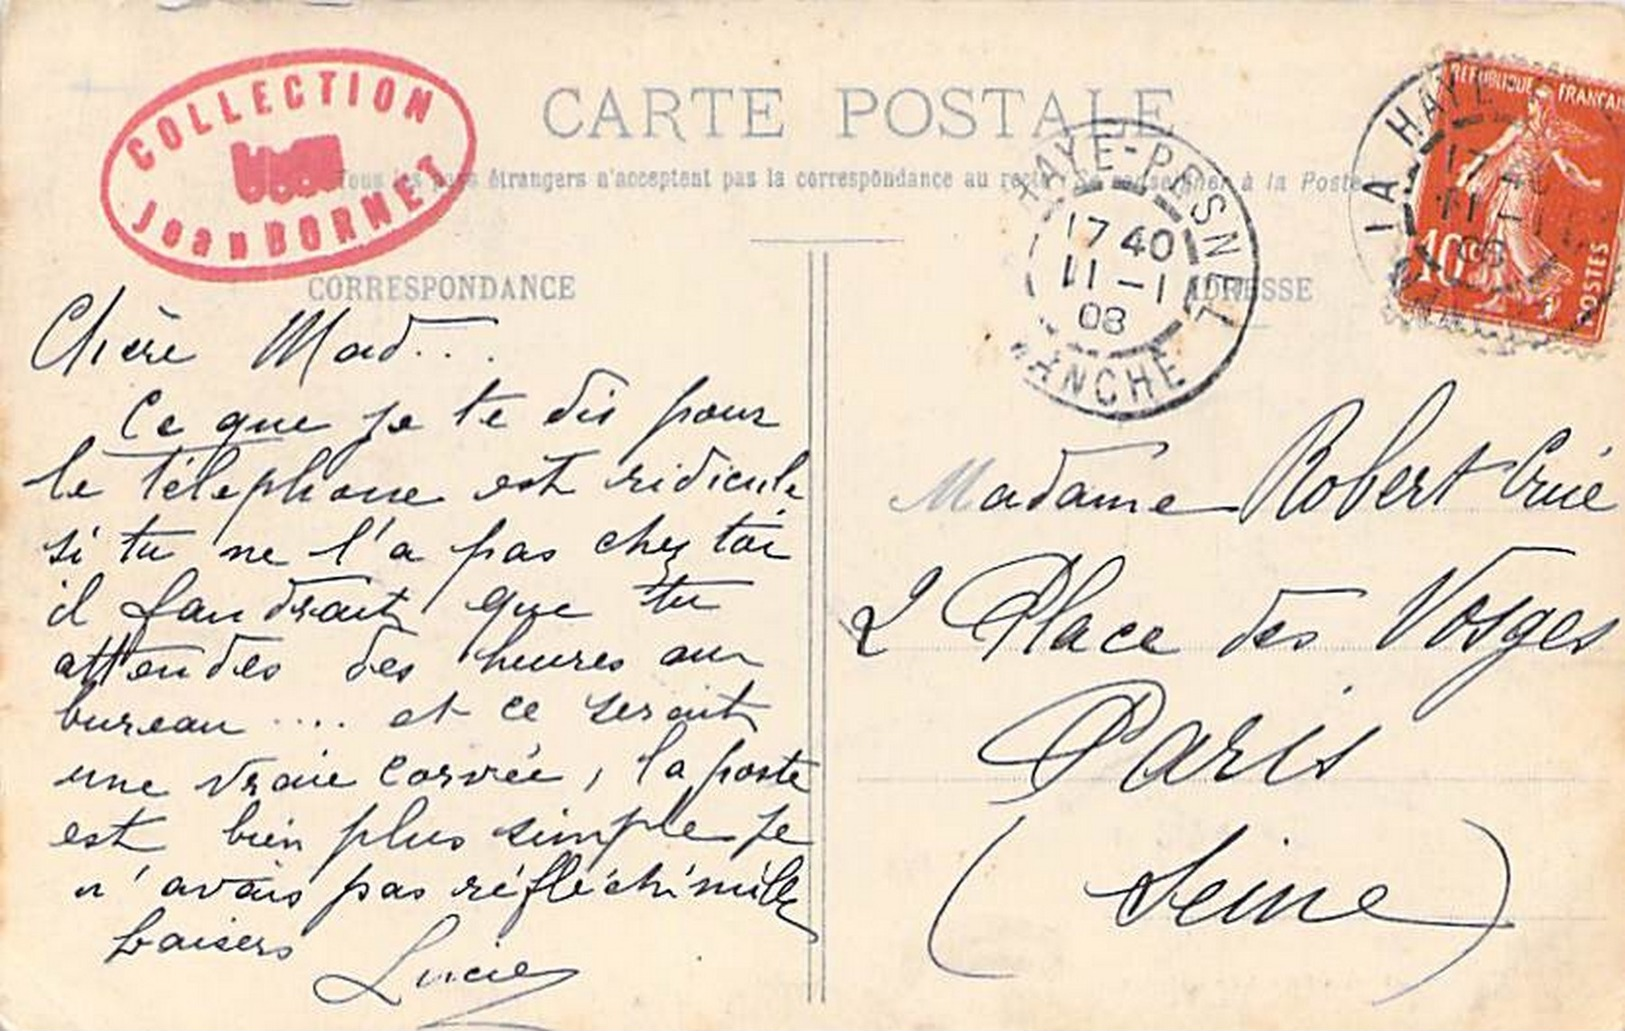 COLLECTION
Jean DORNET
CARTE POSTALE
Tous les pays étrangers n'acceptent pas la correspondance au recto. Se renseigner à la Poste
CORRESPONDANCE
ADRESSE
HAYE-PESNEL
17 40
11 - 1
08
MANCHE
LA HAYE
17 40
11 - 1
08
REPUBLIQUE FRANCAISE
10
POSTES
Chère Mad...
Ce que je te dis pour
le téléphone est ridicule
si tu ne l'a pas chez toi
il faudrait que tu
attendes des heures au
bureau .... et ce serait
une vraie corvée, la poste
est bien plus simple je
n'avais pas réfléchi mille
baisers
Lucie
Madame Robert Crié
2 Place des Vosges
Paris
(Seine)